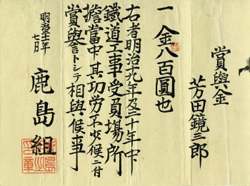 賞與金
芳田鏡三郎
一金八百圓也
右者明治九年及三十年中
鐵道工事受員場所
擔當中其功労不少候ニ付
賞與トシテ相與候事
明治三十一年
七月
鹿島組